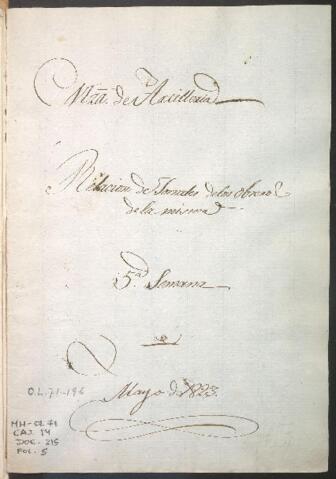 Mzā. de Artilleria
Relacion de Jornales de los obreros
de la misma
5ª Semana
Mayo de 1823.
O.L. 71-196
MH-OL 71
CAJ. 14
DOC. 215
FOL. 5